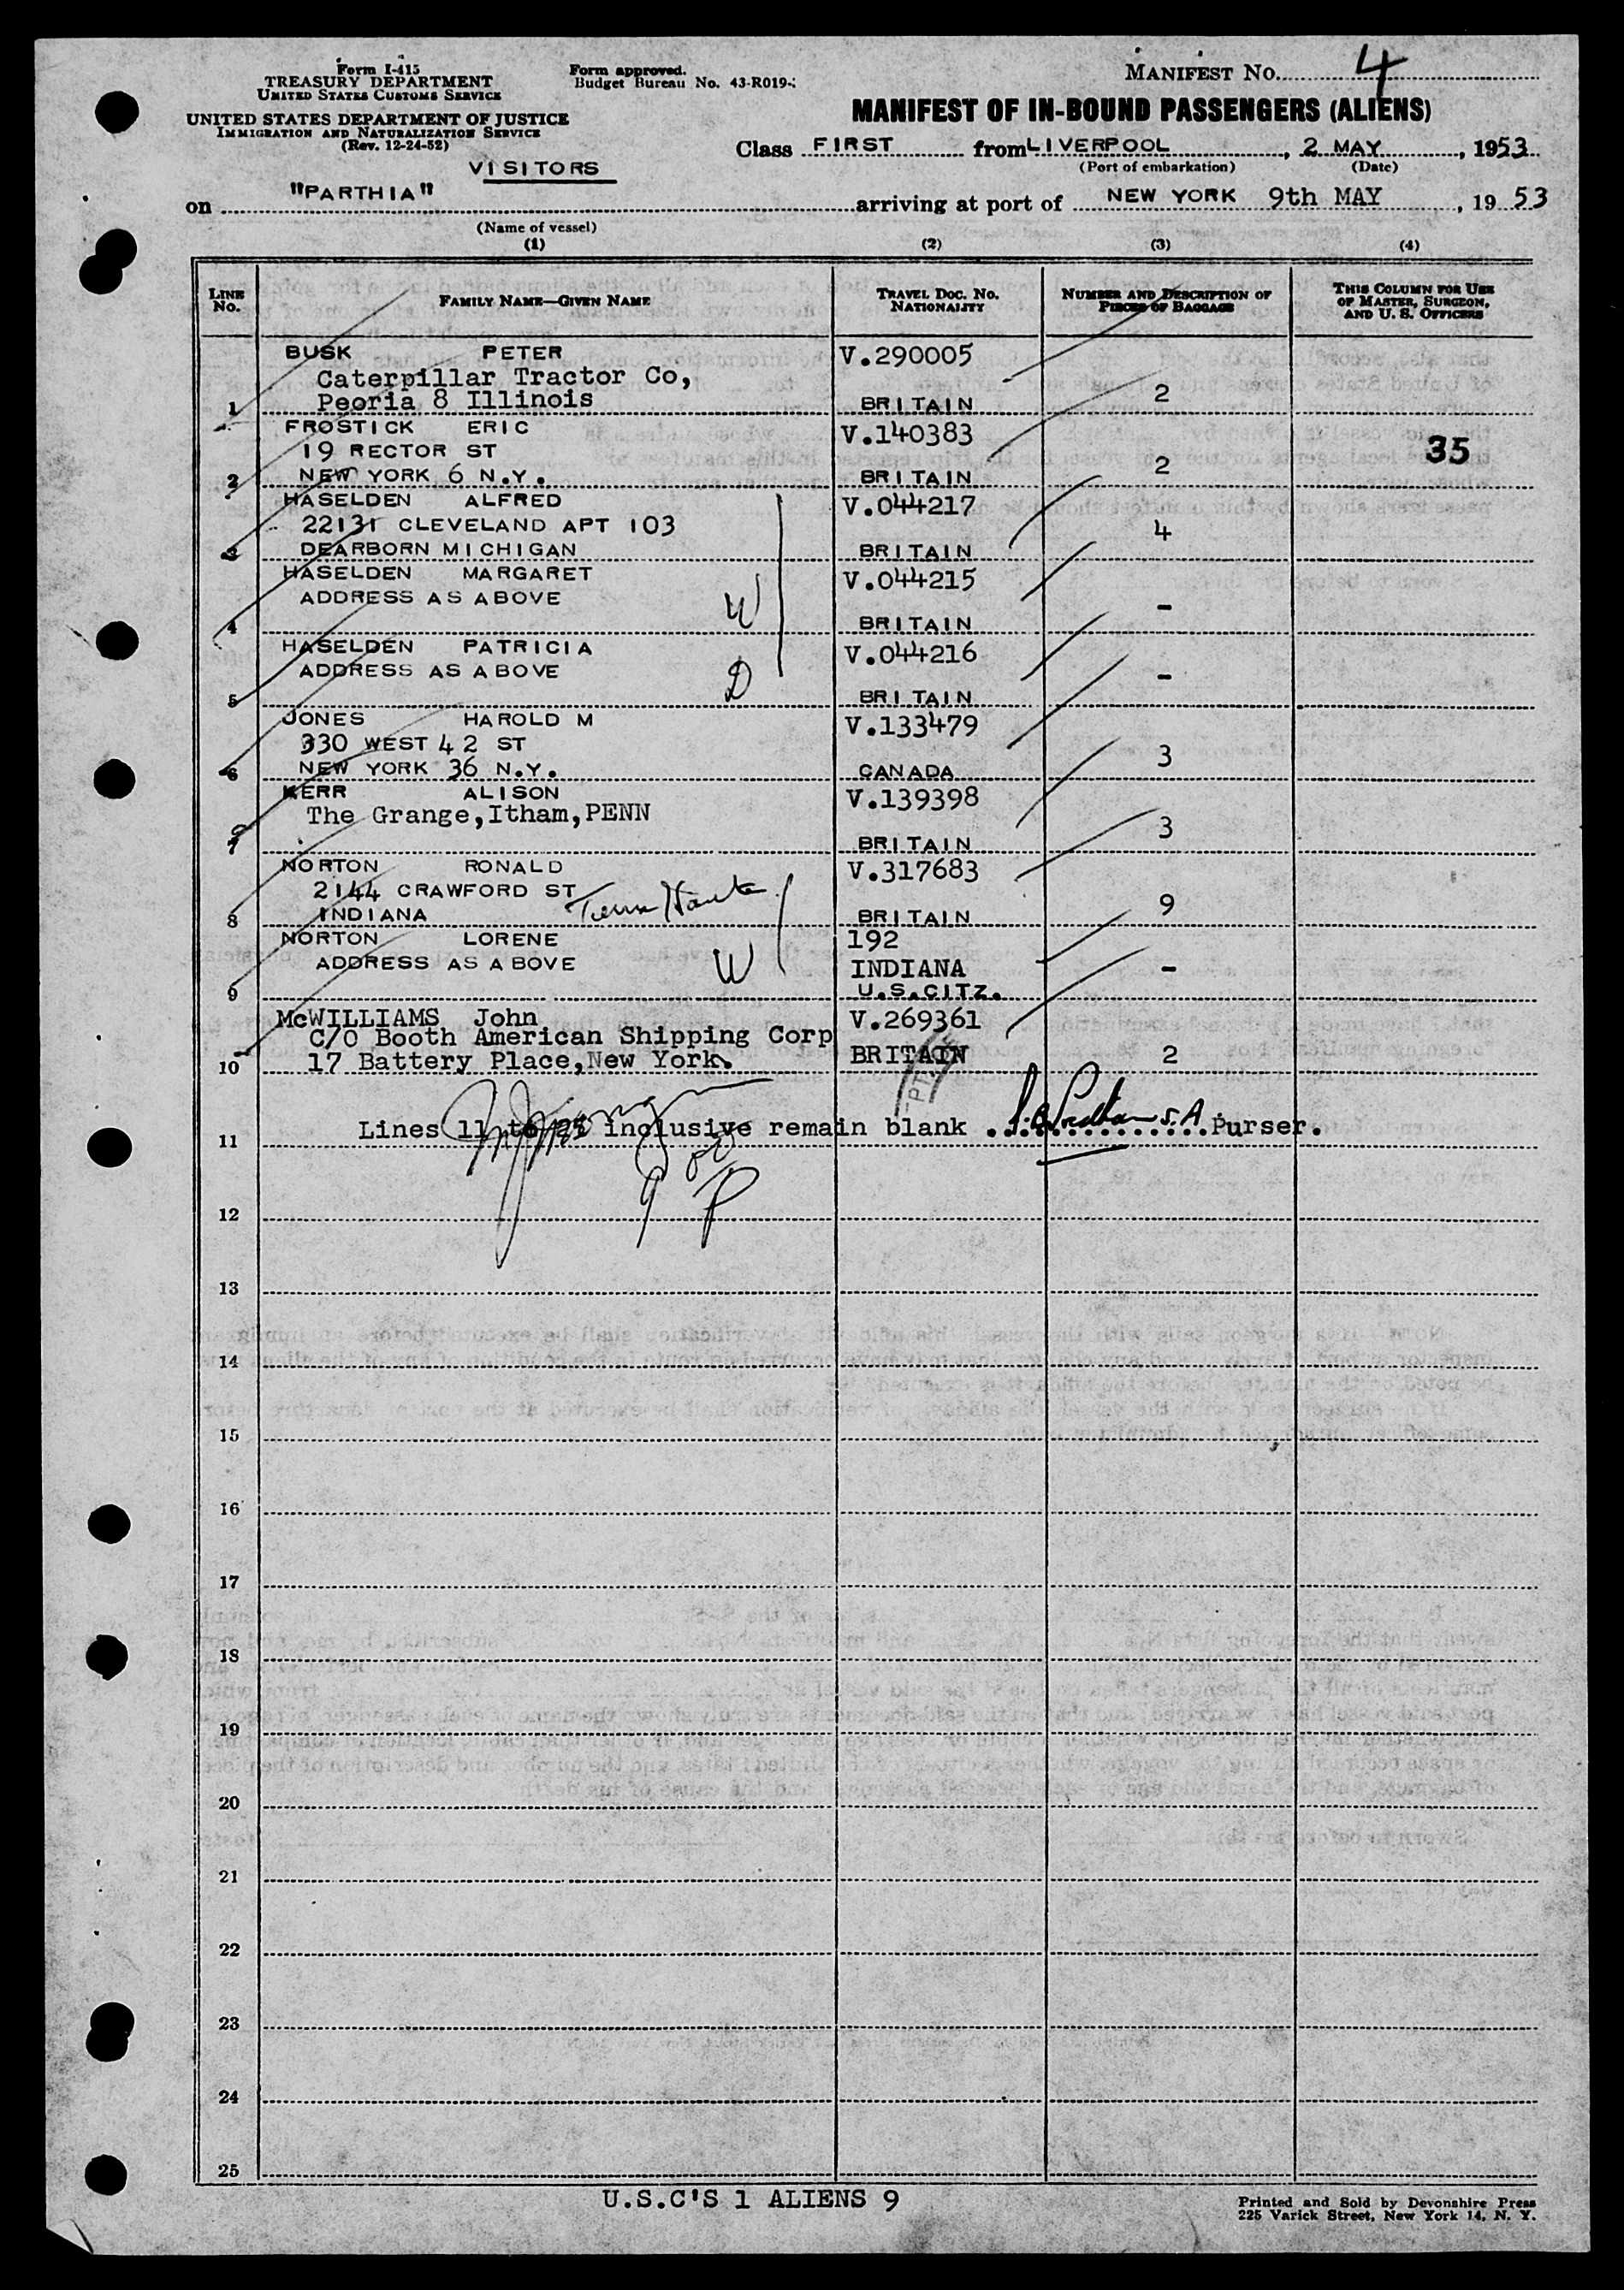 Form I-415
TREASURY DEPARTMENT
UNITED STATES CUSTOMS SERVICE
UNITED STATES DEPARTMENT OF JUSTICE
IMMIGRATION AND NATURALIZATION SERVICE
(Rev. 12-24-52)
Form approved.
Budget Bureau No. 43-R019-
MANIFEST No. 4
MANIFEST OF IN-BOUND PASSENGERS (ALIENS)
Class FIRST from LIVERPOOL, 2 MAY, 1953
(Port of embarkation) (Date)
VISITORS
on "PARTHIA" arriving at port of NEW YORK 9th MAY, 1953
(Name of vessel)
(1) (2) (3) (4)
LINE No. FAMILY NAME—GIVEN NAME TRAVEL DOC. NO. NATIONALITY NUMBER AND DESCRIPTION OF PIECES OF BAGGAGE THIS COLUMN FOR USE OF MASTER, SURGEON, AND U. S. OFFICERS
BUSK PETER V.290005
Caterpillar Tractor Co,
1 Peoria 8 Illinois BRITAIN 2
FROSTICK ERIC V.140383
19 RECTOR ST 35
2 NEW YORK 6 N.Y. BRITAIN 2
HASELDEN ALFRED V.044217
22131 CLEVELAND APT 103
3 DEARBORN MICHIGAN BRITAIN 4
HASELDEN MARGARET V.044215
ADDRESS AS ABOVE W
4 BRITAIN -
HASELDEN PATRICIA V.044216
ADDRESS AS ABOVE D
5 BRITAIN -
JONES HAROLD M V.133479
330 WEST 42 ST
6 NEW YORK 36 N.Y. CANADA 3
KERR ALISON V.139398
The Grange,Itham,PENN
7 BRITAIN 3
NORTON RONALD V.317683
2144 CRAWFORD ST Terre Haute
8 INDIANA BRITAIN 9
NORTON LORENE 192
ADDRESS AS ABOVE W INDIANA -
9 U.S.CITZ.
McWILLIAMS John V.269361
C/O Booth American Shipping Corp
10 17 Battery Place,New York. BRITAIN 2
11 Lines 11 to inclusive remain blank Purser.
12
13
14
15
16
17
18
19
20
21
22
23
24
25
U.S.C'S 1 ALIENS 9
Printed and Sold by Devonshire Press
225 Varick Street, New York 14, N. Y.